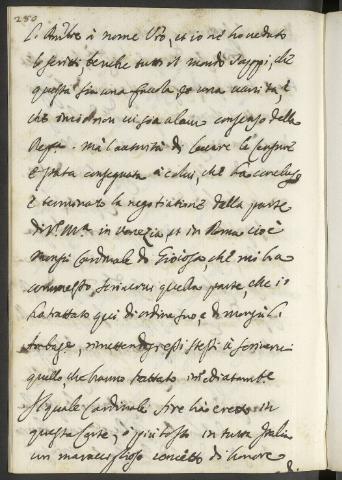 280
à nome Vro, et io nè ho veduto
le scritti, benche tutto il mondo sappi, che
questa sia una favola, et una vanità, e
che mai non vi sia alcun consenso della
Repca. mà l'autorità di levare le censure
è stata consegnata à colui, che ha concluso
e terminato la negotiatione dalla parte
di V. Mtà in Venezia, et in Roma cioè
Monsr Cardinale di Gioiosa, che mi ha
commesso, scrivervi quella parte, che io
ho trattato qui di ordine suo, e di Monsr di
rimettendo essi stessi à scrivervi
quello, che hanno trattato inmediatamte
Il quale Cardinale Sire hà eretto in
questa Corte, e più tosto in tutta Italia
un maraviglioso concetto di honore
di